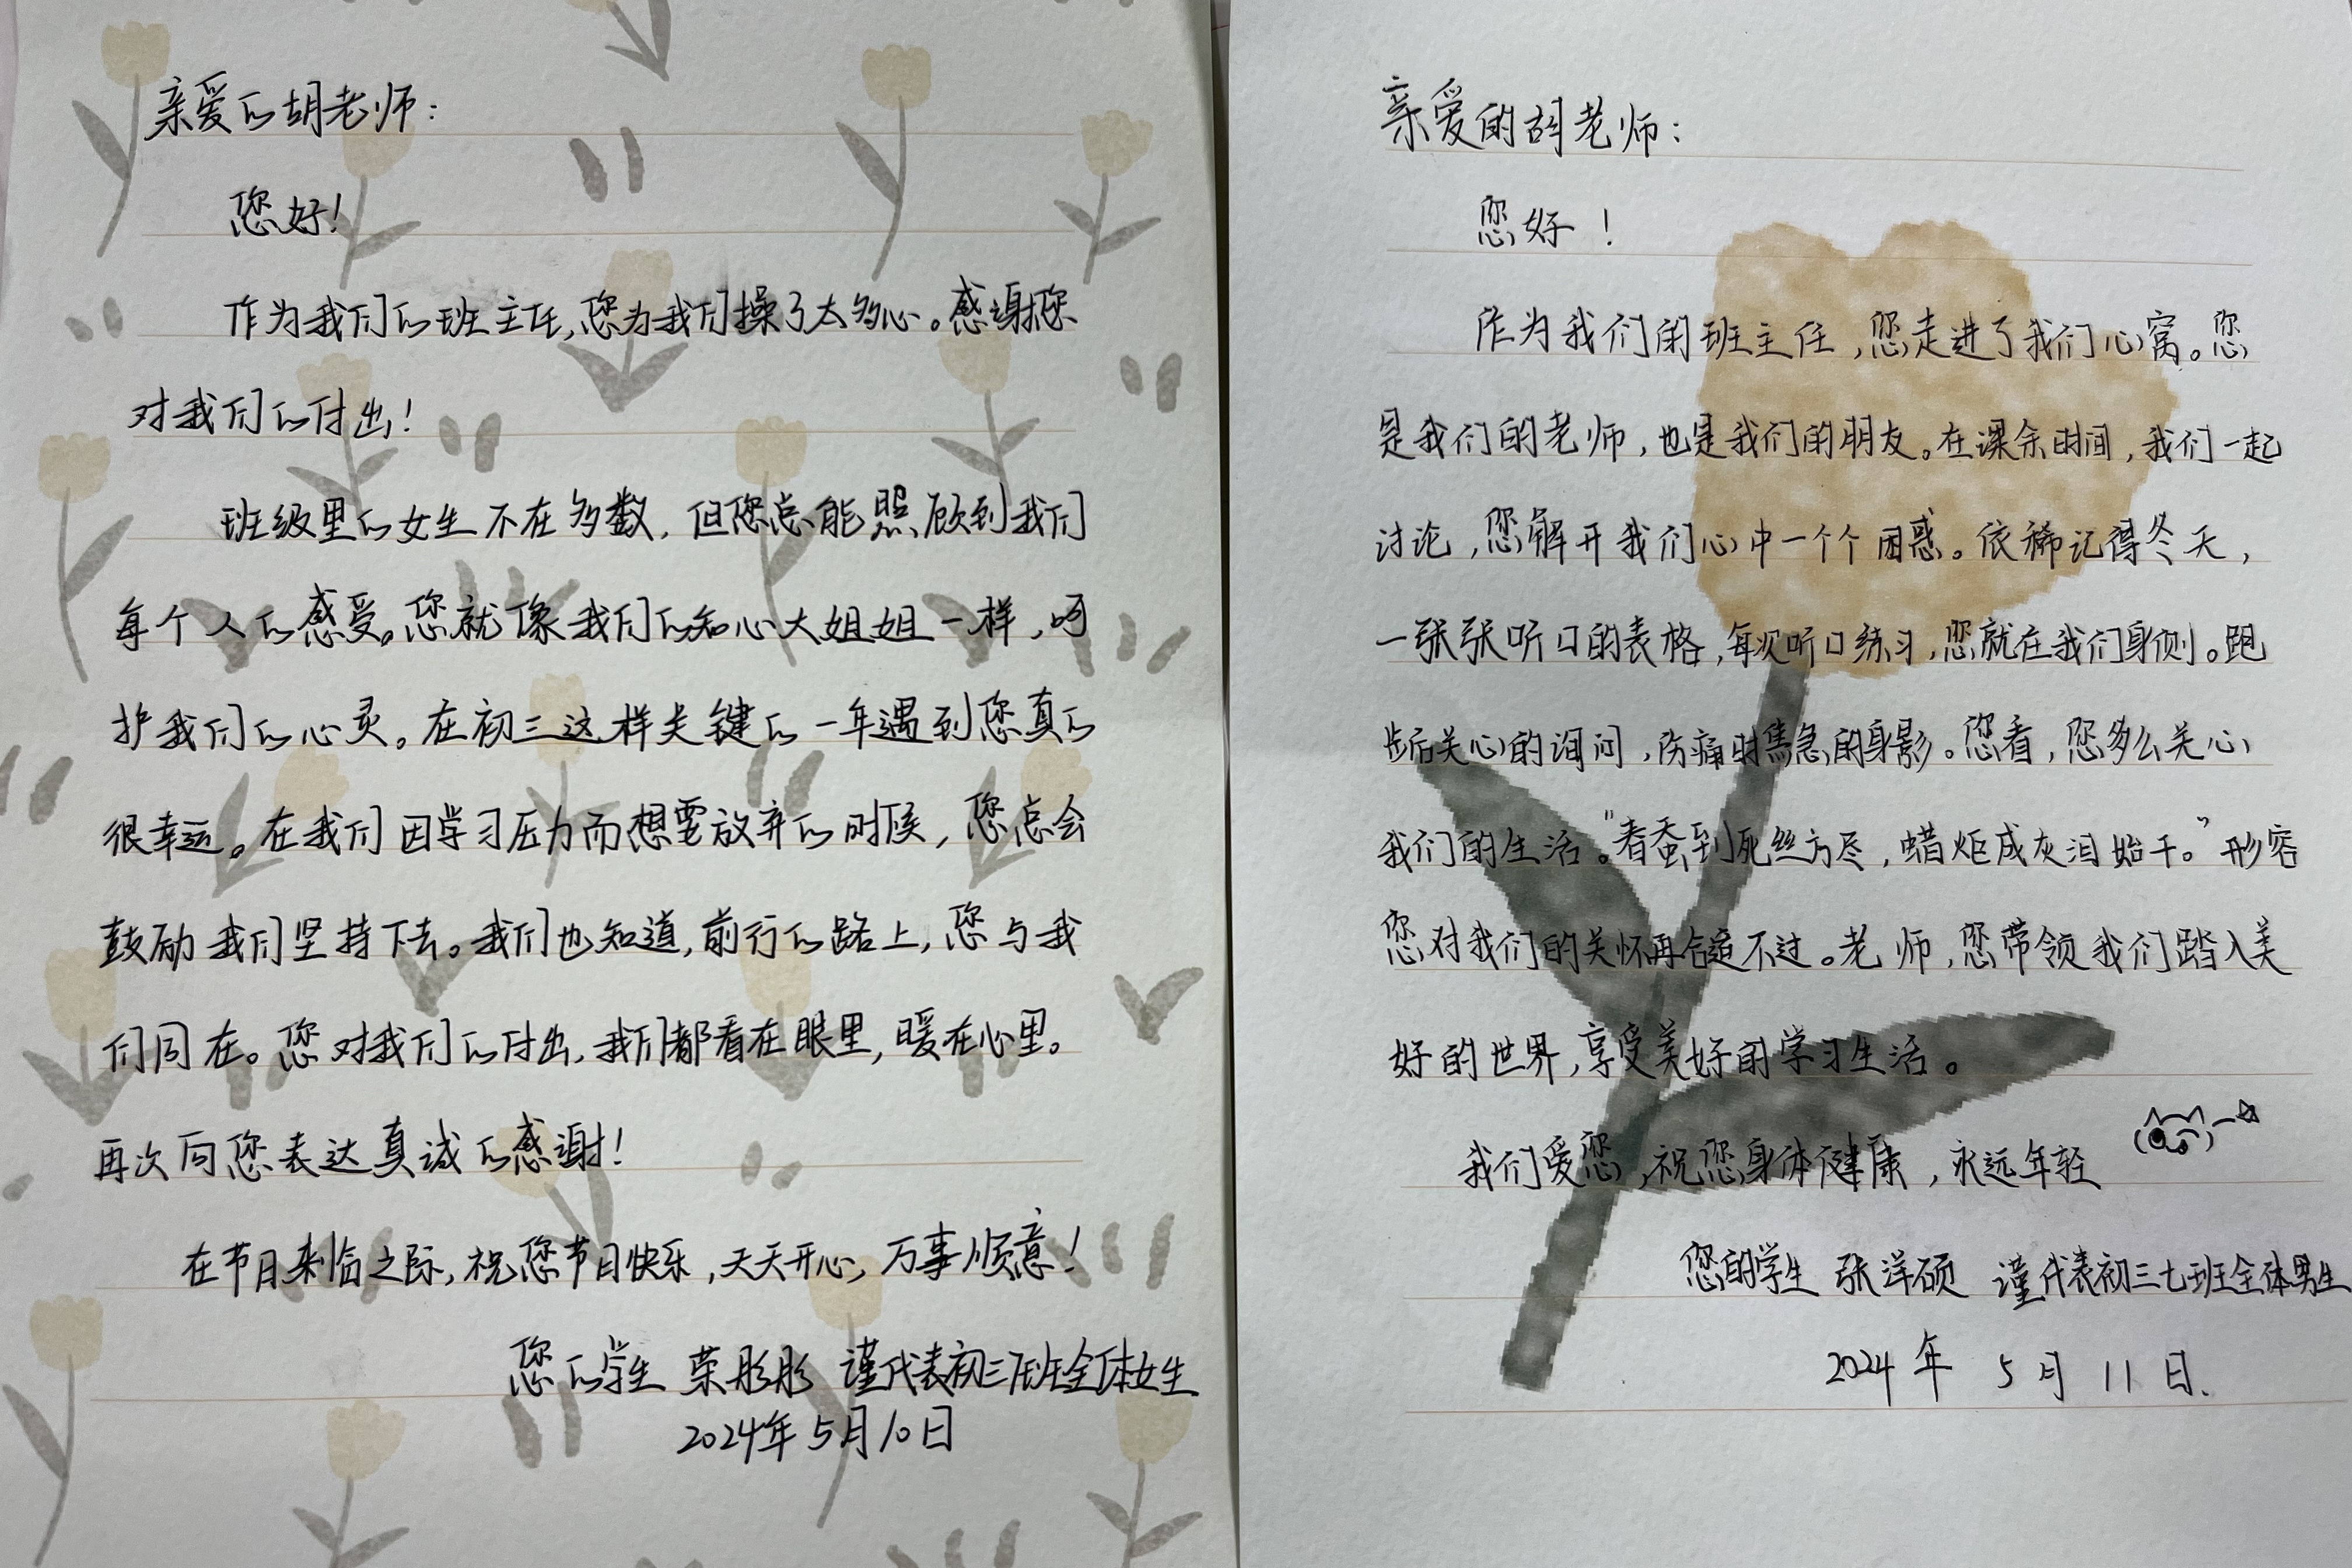 亲爱的胡老师：
您好！
作为我们的班主任，您为我们操了太多心。感谢您
对我们的付出！
班级里的女生不在多数，但您总能照顾到我们
每个人的感受。您就像我们的知心大姐姐一样，呵
护我们的心灵。在初三这样关键的一年遇到您真的
很幸运。在我们因学习压力而想要放弃的时候，您总会
鼓励我们坚持下去。我们也知道，前行的路上，您与我
们同在。您对我们的付出，我们都看在眼里，暖在心里。
再次向您表达真诚的感谢！
在节日来临之际，祝您节日快乐，天天开心，万事顺意！
您的学生 荣彤彤 谨代表初三班全体女生
2024年5月10日
亲爱的胡老师：
您好！
作为我们的班主任，您走进了我们心窝。您
是我们的老师，也是我们的朋友。在课余时间，我们一起
讨论，您解开我们心中一个个困惑。依稀记得冬天，
一张张听口的表格，每次听口练习，您就在我们身侧。跑
步后关心的询问，伤痛时焦急的身影。您看，您多么关心
我们的生活。“春蚕到死丝方尽，蜡炬成灰泪始干。”形容
您对我们的关怀再合适不过。老师，您带领我们踏入美
好的世界，享受美好的学习生活。
我们爱您，祝您身体健康，永远年轻
您的学生 张洋硕 谨代表初三七班全体男生
2024年 5月 11日.